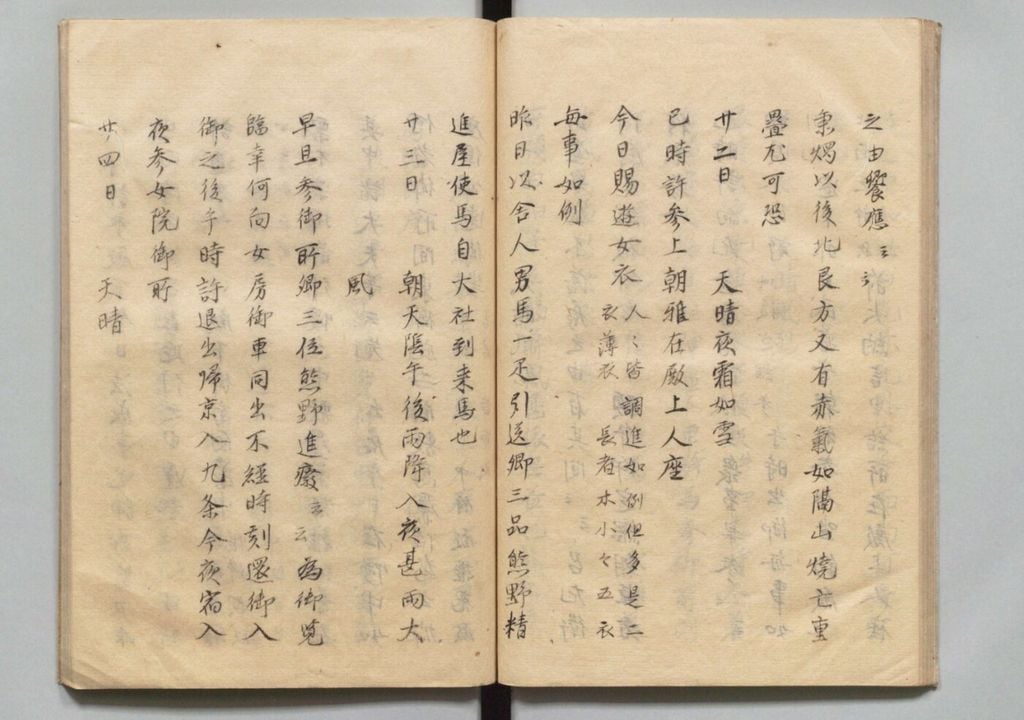 之由饗應云云
秉燭以後北艮方又有赤氣如隔山燒亡重
疊尤可恐
廿二日　天晴夜霜如雪
巳時許参上朝雅在殿上人座
今日賜遊女衣 人〻皆調進如例但多是二
衣薄衣　長者木小々五衣
毎事如例
昨日以舎人男馬一疋引送卿三品熊野精
進屋使馬自大社到来馬也
廿三日　朝天陰午後雨降入夜甚雨大
風
早旦参御所卿三位熊野進癈云云為御覧
臨幸何向女房御車同出不經時刻還御入
御之後午時許退出歸京入九条今夜宿入
夜参女院御所
廿四日　天晴